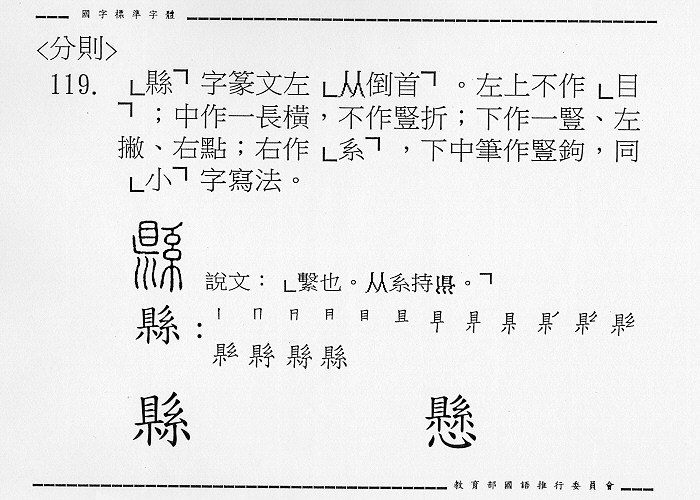 國字標準字體
<分則>
119. 「縣」字篆文左「从倒首」。左上不作「目
」；中作一長橫，不作豎折；下作一豎、左
撇、右點；右作「系」，下中筆作豎鉤，同
「小」字寫法。
縣 說文：「繫也。从系持𥄉。」
縣：
縣
縣 懸
教育部國語推行委員會